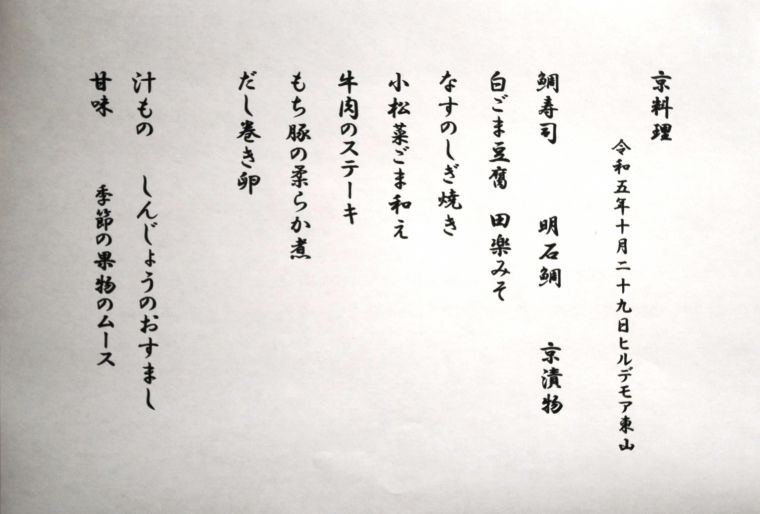 京料理
令和五年十月二十九日ヒルデモア東山
鯛寿司　明石鯛　京漬物
白ごま豆腐　田楽みそ
なすのしぎ焼き
小松菜ごま和え
牛肉のステーキ
もち豚の柔らか煮
だし巻き卵
汁もの　しんじょうのおすまし
甘味　季節の果物のムース